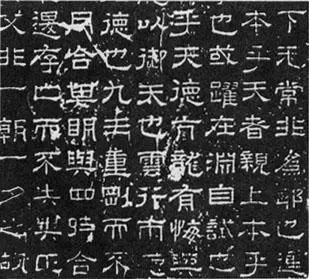 下无常非為邪也進
本乎天者親上本乎
也故躍在淵自試也
乎天德亢龍有悔與
以御天也雲行雨
德也九三重剛而不
月合其明與四時合
退存亡而不失其正
父非一朝一夕之故